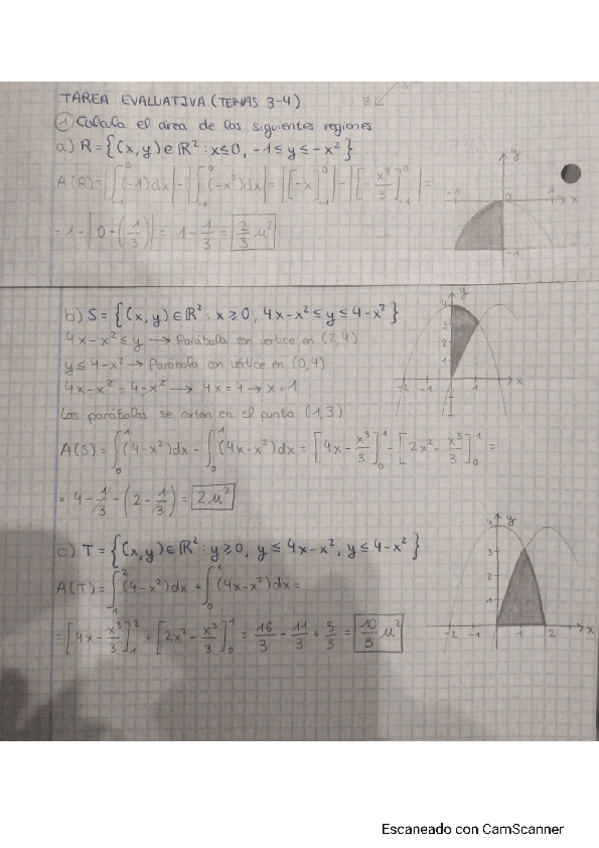 TAREA EVALUATIVA (TEMAS 3-4)
① Calcula el área de las siguientes regiones:
a) R = {(x,y) ∈ ℝ² : x ≤ 0, -1 ≤ y ≤ -x²}
A(R) = |∫₋₁⁰ (-1)dx| - |∫₋₁⁰ (-x²)dx| = |[-x]₋₁⁰| - |[-x³/3]₋₁⁰| =
= 1 - |0 - (1/3)| = 1 - 1/3 = 2/3 u²
y
-1 0 1 x
-1
b) S = {(x,y) ∈ ℝ² : x ≥ 0, 4x-x² ≤ y ≤ 4-x²}
4x-x² ≤ y → Parábola con vértice en (2,4)
y ≤ 4-x² → Parábola con vértice en (0,4)
4x-x² = 4-x² → 4x = 4 → x = 1
Las parábolas se cortan en el punto (1,3)
A(S) = ∫₀¹ (4-x²)dx - ∫₀¹ (4x-x²)dx = [4x - x³/3]₀¹ - [2x² - x³/3]₀¹ =
= 4 - 1/3 - (2 - 1/3) = 2u²
y
4
3
2
1
-2 1 x
c) T = {(x,y) ∈ ℝ² : y ≥ 0, y ≤ 4x-x², y ≤ 4-x²}
A(T) = ∫₁² (4-x²)dx + ∫₀¹ (4x-x²)dx =
= [4x - x³/3]₁² + [2x² - x³/3]₀¹ = 16/3 - 11/3 + 5/3 = 10/3 u²
4 y
3
2
1
-2 -1 1 2 x
Escaneado con CamScanner